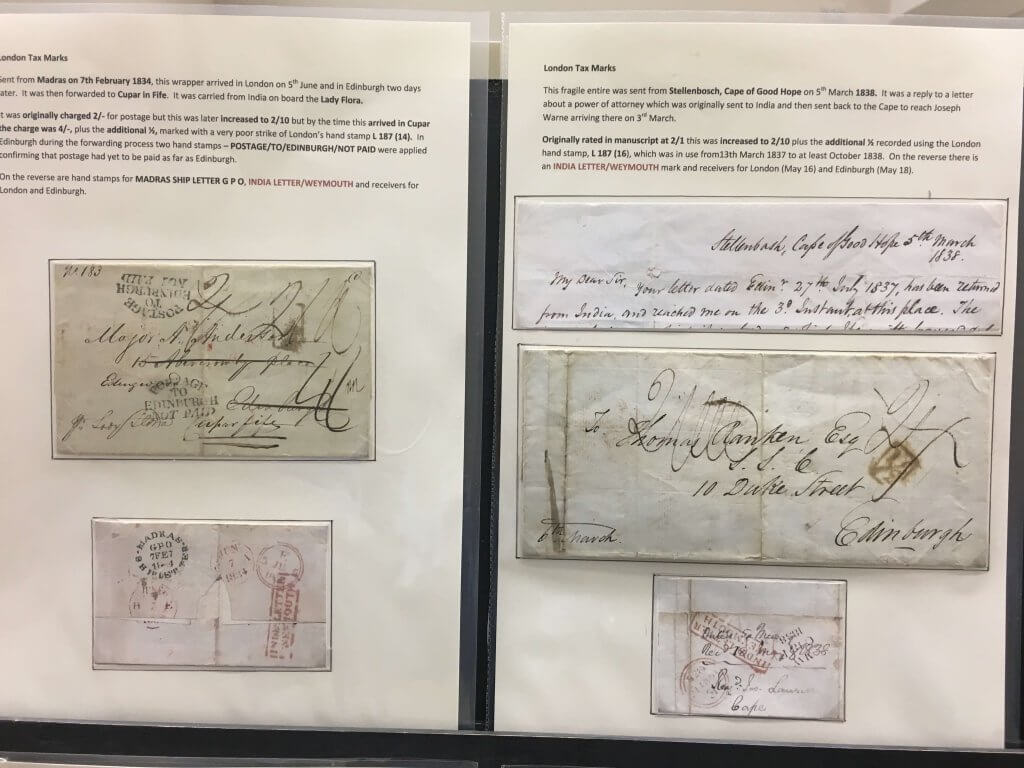 London Tax Marks
Sent from Madras on 7th February 1834, this wrapper arrived in London on 5th June and in Edinburgh two days
later. It was then forwarded to Cupar in Fife. It was carried from India on board the Lady Flora.
It was originally charged 2/- for postage but this was later increased to 2/10 but by the time this arrived in Cupar
the charge was 4/-, plus the additional ½, marked with a very poor strike of London's hand stamp L 187 (14). In
Edinburgh during the forwarding process two hand stamps – POSTAGE/TO/EDINBURGH/NOT PAID were applied
confirming that postage had yet to be paid as far as Edinburgh.
On the reverse are hand stamps for MADRAS SHIP LETTER G P O, INDIA LETTER/WEYMOUTH and receivers for
London and Edinburgh.
No 183
POSTAGE
TO
EDINBURGH
NOT PAID
Major
Place
Edinburgh
POSTAGE
TO
EDINBURGH
NOT PAID
Cupar fife
MADRAS
GPO
7FE7
JUN
7
1834
INDIA LETTER
WEYMOUTH
London Tax Marks
This fragile entire was sent from Stellenbosch, Cape of Good Hope on 5th March 1838. It was a reply to a letter
about a power of attorney which was originally sent to India and then sent back to the Cape to reach Joseph
Warne arriving there on 3rd March.
Originally rated in manuscript at 2/1 this was increased to 2/10 plus the additional ½ recorded using the London
hand stamp, L 187 (16), which was in use from13th March 1837 to at least October 1838. On the reverse there is
an INDIA LETTER/WEYMOUTH mark and receivers for London (May 16) and Edinburgh (May 18).
Stellenbosh, Cape of Good Hope 5th March
1838.
My Dear Sir, Your letter dated Edinr. 27th July 1837, has been returned
from India, and reached me on the 3d Instant at this place. The
To Thomas Ranken Esq
S. S. C
10 Duke Street
Edinburgh
6th March
Cape